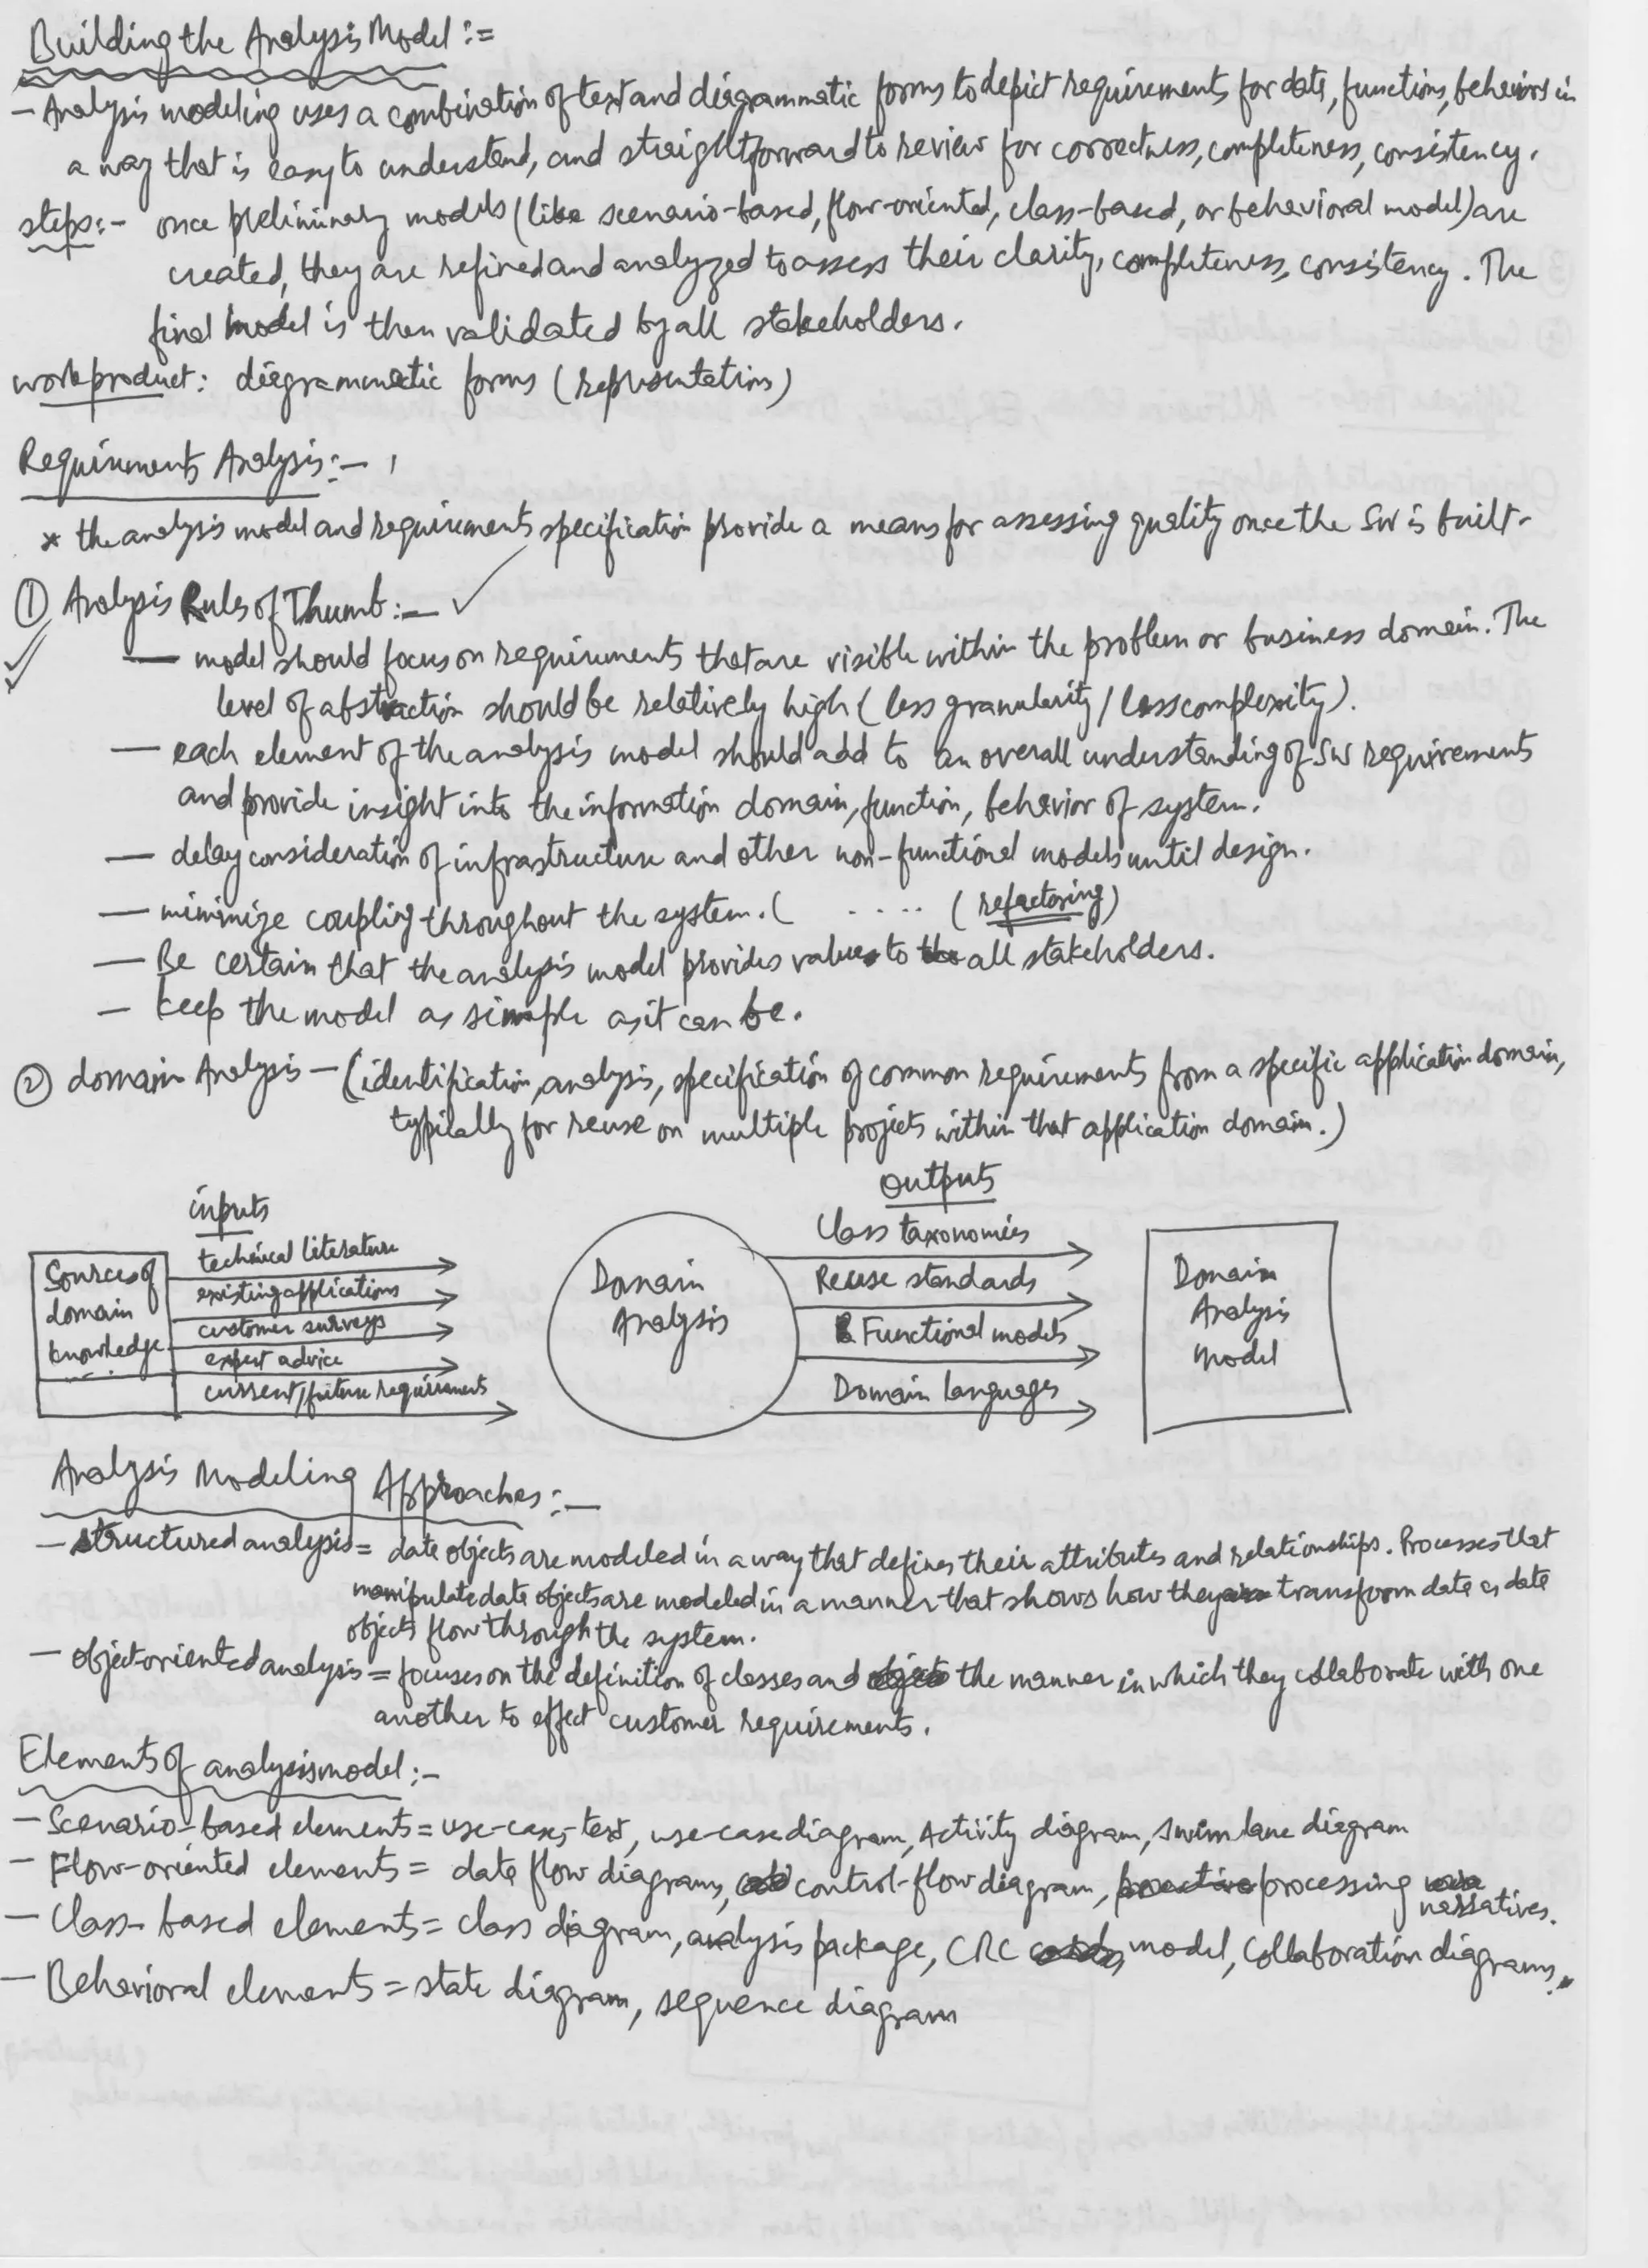 Building the Analysis Model :=
- Analysis modeling uses a combination of text and diagrammatic forms to depict requirements for data, functions, behaviors in
a way that is easy to understand, and straightforward to review for correctness, completeness, consistency.
steps:- once preliminary models (like scenario-based, flow-oriented, class-based, or behavioral model) are
created, they are refined and analyzed to assess their clarity, completeness, consistency. The
final model is then validated by all stakeholders.
workproduct: diagrammatic forms (representations)
Requirements Analysis:-
* the analysis model and requirements specification provide a means for assessing quality once the SW is built.
① Analysis Rules of Thumb:- ✓
— model should focus on requirements that are visible within the problem or business domain. The
level of abstraction should be relatively high (less granularity / less complexity).
— each element of the analysis model should add to an overall understanding of SW requirements
and provide insight into the information domain, function, behavior of system.
— delay consideration of infrastructure and other non-functional models until design.
— minimize coupling throughout the system. ( ..... (refactoring)
— Be certain that the analysis model provides value to all stakeholders.
— keep the model as simple as it can be.
② domain Analysis — (identification, analysis, specification of common requirements from a specific application domain,
typically for reuse on multiple projects within that application domain.)
inputs
Outputs
Sources of
domain
knowledge
technical literature
existing applications
customer surveys
expert advice
current/future requirements
Domain
Analysis
Class taxonomies
Reuse standards
Functional models
Domain languages
Domain
Analysis
Model
Analysis Modeling Approaches:—
— structured analysis = data objects are modeled in a way that defines their attributes and relationships. Processes that
manipulate data objects are modeled in a manner that shows how they transform data as data
objects flow through the system.
— object oriented analysis = focuses on the definition of classes and the manner in which they collaborate with one
another to effect customer requirements.
Elements of analysis model:-
— Scenario-based elements = use-cases-text, use-case diagram, Activity diagram, swim lane diagram
— Flow-oriented elements = data flow diagrams, control-flow diagram, processing
narratives.
— Class-based elements = class diagram, analysis package, CRC model, Collaboration diagrams.
— Behavioral elements = state diagram, sequence diagram